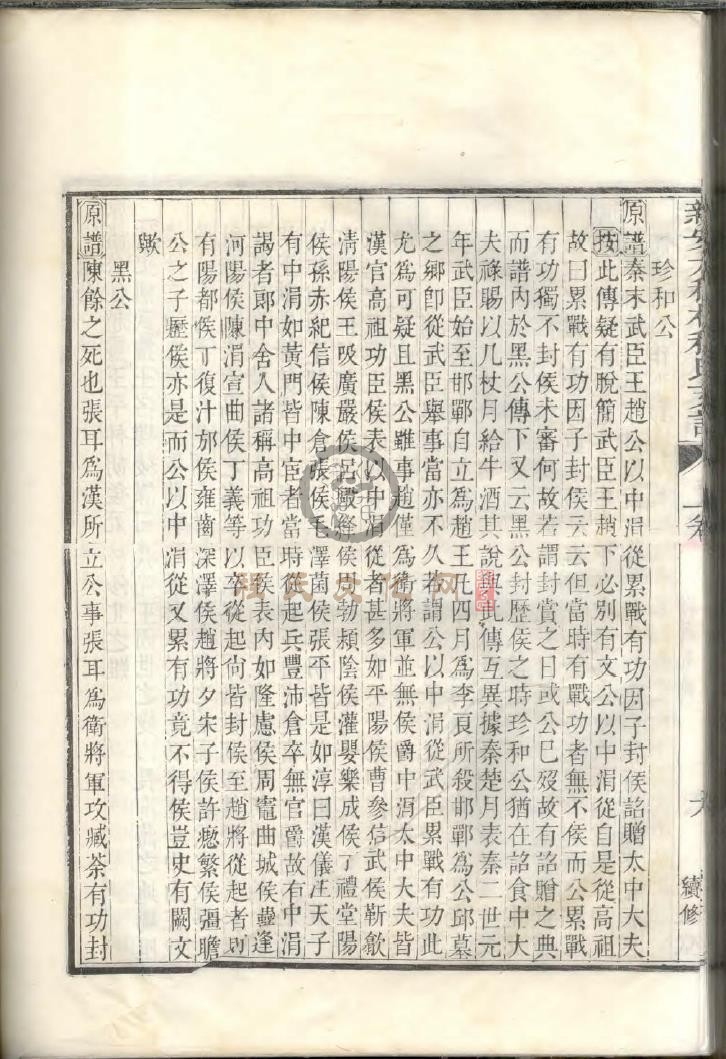 珍和公
原譜秦末武臣王趙公以中涓從累戰有功因子封侯詔贈太中大夫
按此傳疑有脫簡武臣王趙下必別有文公以中涓從自是從高祖
故曰累戰有功因子封侯云云但當時有戰功者無不侯而公累戰
有功獨不封侯未審何故若謂封賞之日或公已歿故有詔贈之典
而譜內於黑公傳下又云黑公封歷侯之時珍和公猶在詔食中大
夫祿賜以几杖月給牛酒其說與此傳互異據秦楚月表秦二世元
年武臣始至邯鄲自立為趙王凡四月為李良所殺邯鄲為公邱墓
之鄉卽從武臣舉事當亦不久若謂公以中涓從武臣累戰有功此
尤為可疑且黑公雖事趙僅為衛將軍並無侯爵中涓太中大夫皆
漢官高祖功臣侯表以中涓從者甚多如平陽侯曹參信武侯靳歙
淸陽侯王吸廣嚴侯呂歐絳侯周勃潁陰侯灌嬰樂成侯丁禮堂陽
侯孫赤紀信侯陳倉張侯毛澤菌侯張平皆是如淳曰漢儀注天子
有中涓如黃門皆中宦者當時從起兵豐沛倉卒無官爵故有中涓
謁者郞中舍人諸稱高祖功臣侯表內如隆慮侯周竈曲城侯蠱逢
河陽侯陳涓宣曲侯丁義等以卒從起尙皆封侯至趙將從起者則
有陽都侯丁復汁邡侯雍齒深澤侯趙將夕宋子侯許瘛繁侯彊瞻
公之子歷侯亦是而公以中涓從又累有功竟不得侯豈史有闕文
歟
黑公
原譜陳餘之死也張耳為漢所立公事張耳為衛將軍攻臧荼有功封
一卷
六
續修